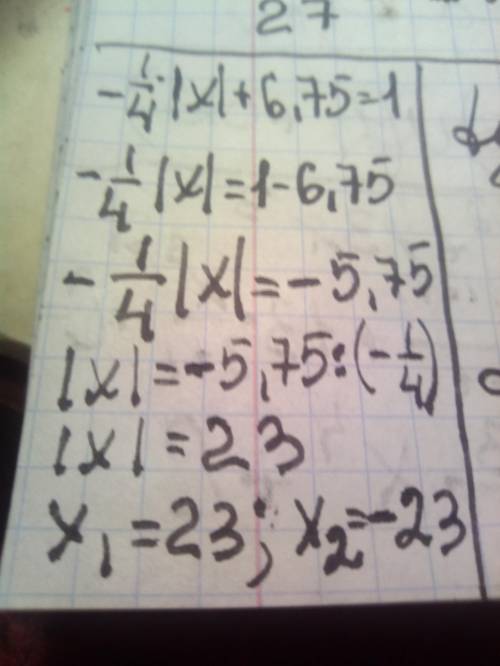 27
-1/4·|x|+6,75=1
-1/4|x|=1-6,75
-1/4|x|=-5,75
|x|=-5,75:(-1/4)
|x|=23
x₁=23; x₂=-23